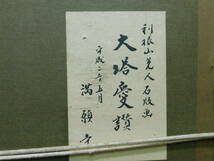 利根山光人石版画
大塔慶讃
平成二年五月
満願寺